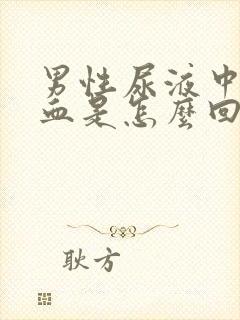 男性尿液中
血是怎麼回
耿方